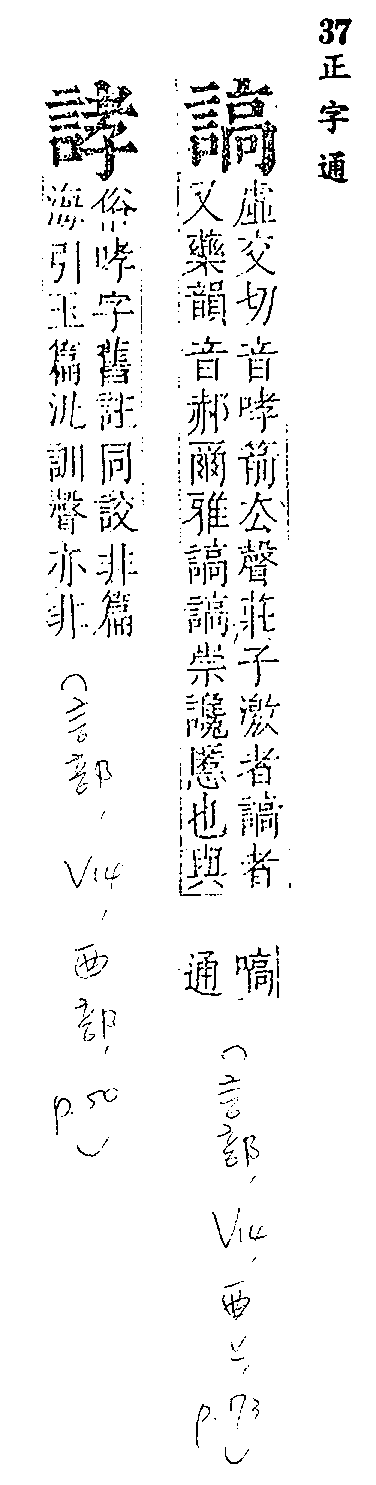 37 正字通
謞
虛交切音哮箭厺聲莊子激者謞者嗃
又藥韻音郝爾雅謞謞崇讒慝也與通
(言部, V14, 酉上, p.73)
誟
俗哮字舊註同詨非篇
海引玉篇汎訓聲亦非
(言部, V14, 酉部, p.50)